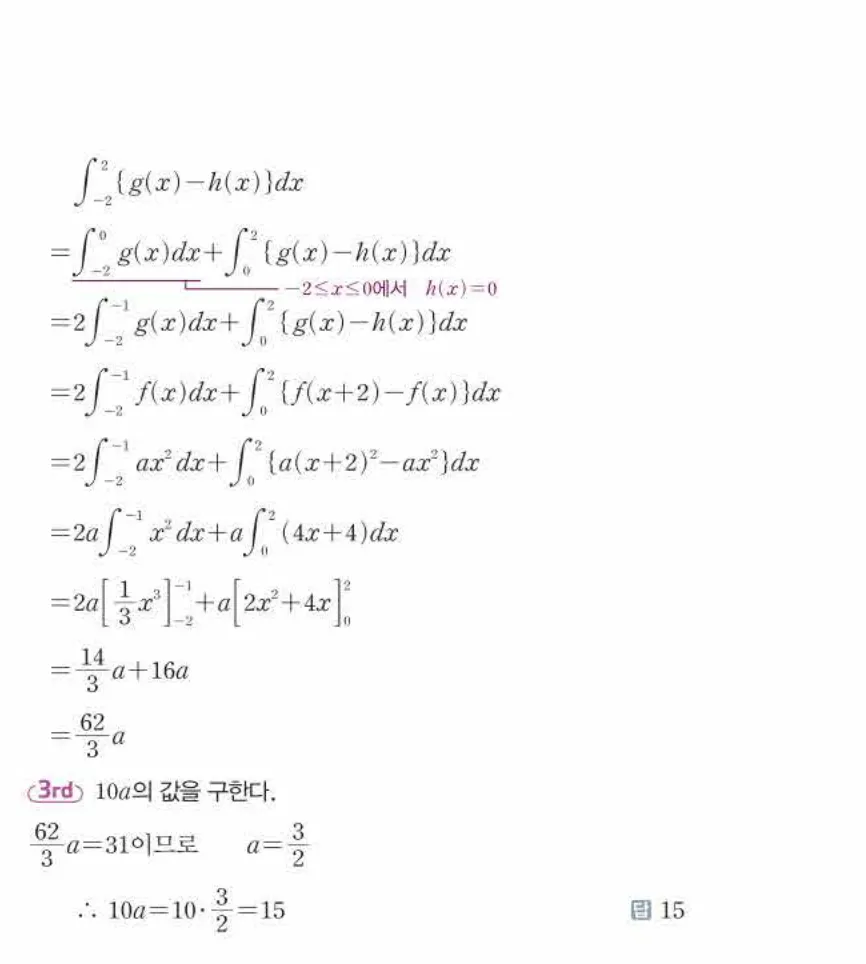 ∫_{-2}^{2} {g(x)-h(x)}dx
=∫_{-2}^{0} g(x)dx+∫_{0}^{2} {g(x)-h(x)}dx
-2≤x≤0에서 h(x)=0
=2∫_{-2}^{-1} g(x)dx+∫_{0}^{2} {g(x)-h(x)}dx
=2∫_{-2}^{-1} f(x)dx+∫_{0}^{2} {f(x+2)-f(x)}dx
=2∫_{-2}^{-1} ax²dx+∫_{0}^{2} {a(x+2)²-ax²}dx
=2a∫_{-2}^{-1} x²dx+a∫_{0}^{2} (4x+4)dx
=2a[1/3 x³]_{-2}^{-1}+a[2x²+4x]_{0}^{2}
=14/3 a+16a
=62/3 a
3rd 10a의 값을 구한다.
62/3 a=31이므로 a=3/2
∴ 10a=10·3/2=15 답 15